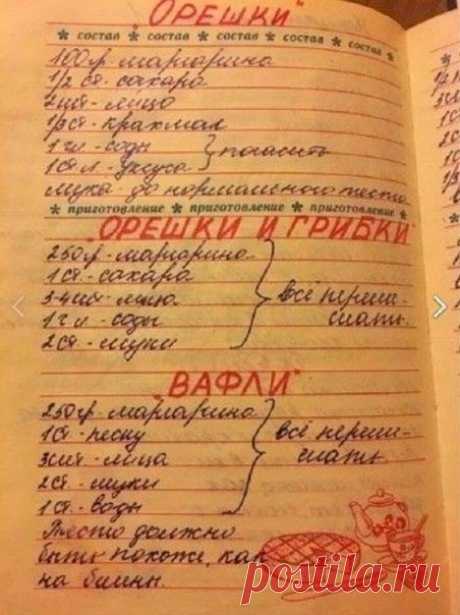 "ОРЕШКИ"
* состав * состав * состав * состав * состав *
100 гр. маргарина
1/2 ст. сахара
2 шт - яйца
1/3 ст - крахмал
1 ч л - соды } погасить
1 ст л - уксуса
Мука до нормального теста
* приготовление * приготовление * приготовление *
"ОРЕШКИ И ГРИБКИ"
250 гр. маргарина
1 ст - сахара
3-4 шт - яйца } всё переме-
1 ч л - соды шать.
2 ст - муки
"ВАФЛИ"
250 гр - маргарина
1 ст - песку } всё переме-
3 шт - яйца шать
2 ст - муки
1 ст - воды
Тесто должно
быть похоже, как
на блины.
postila.ru